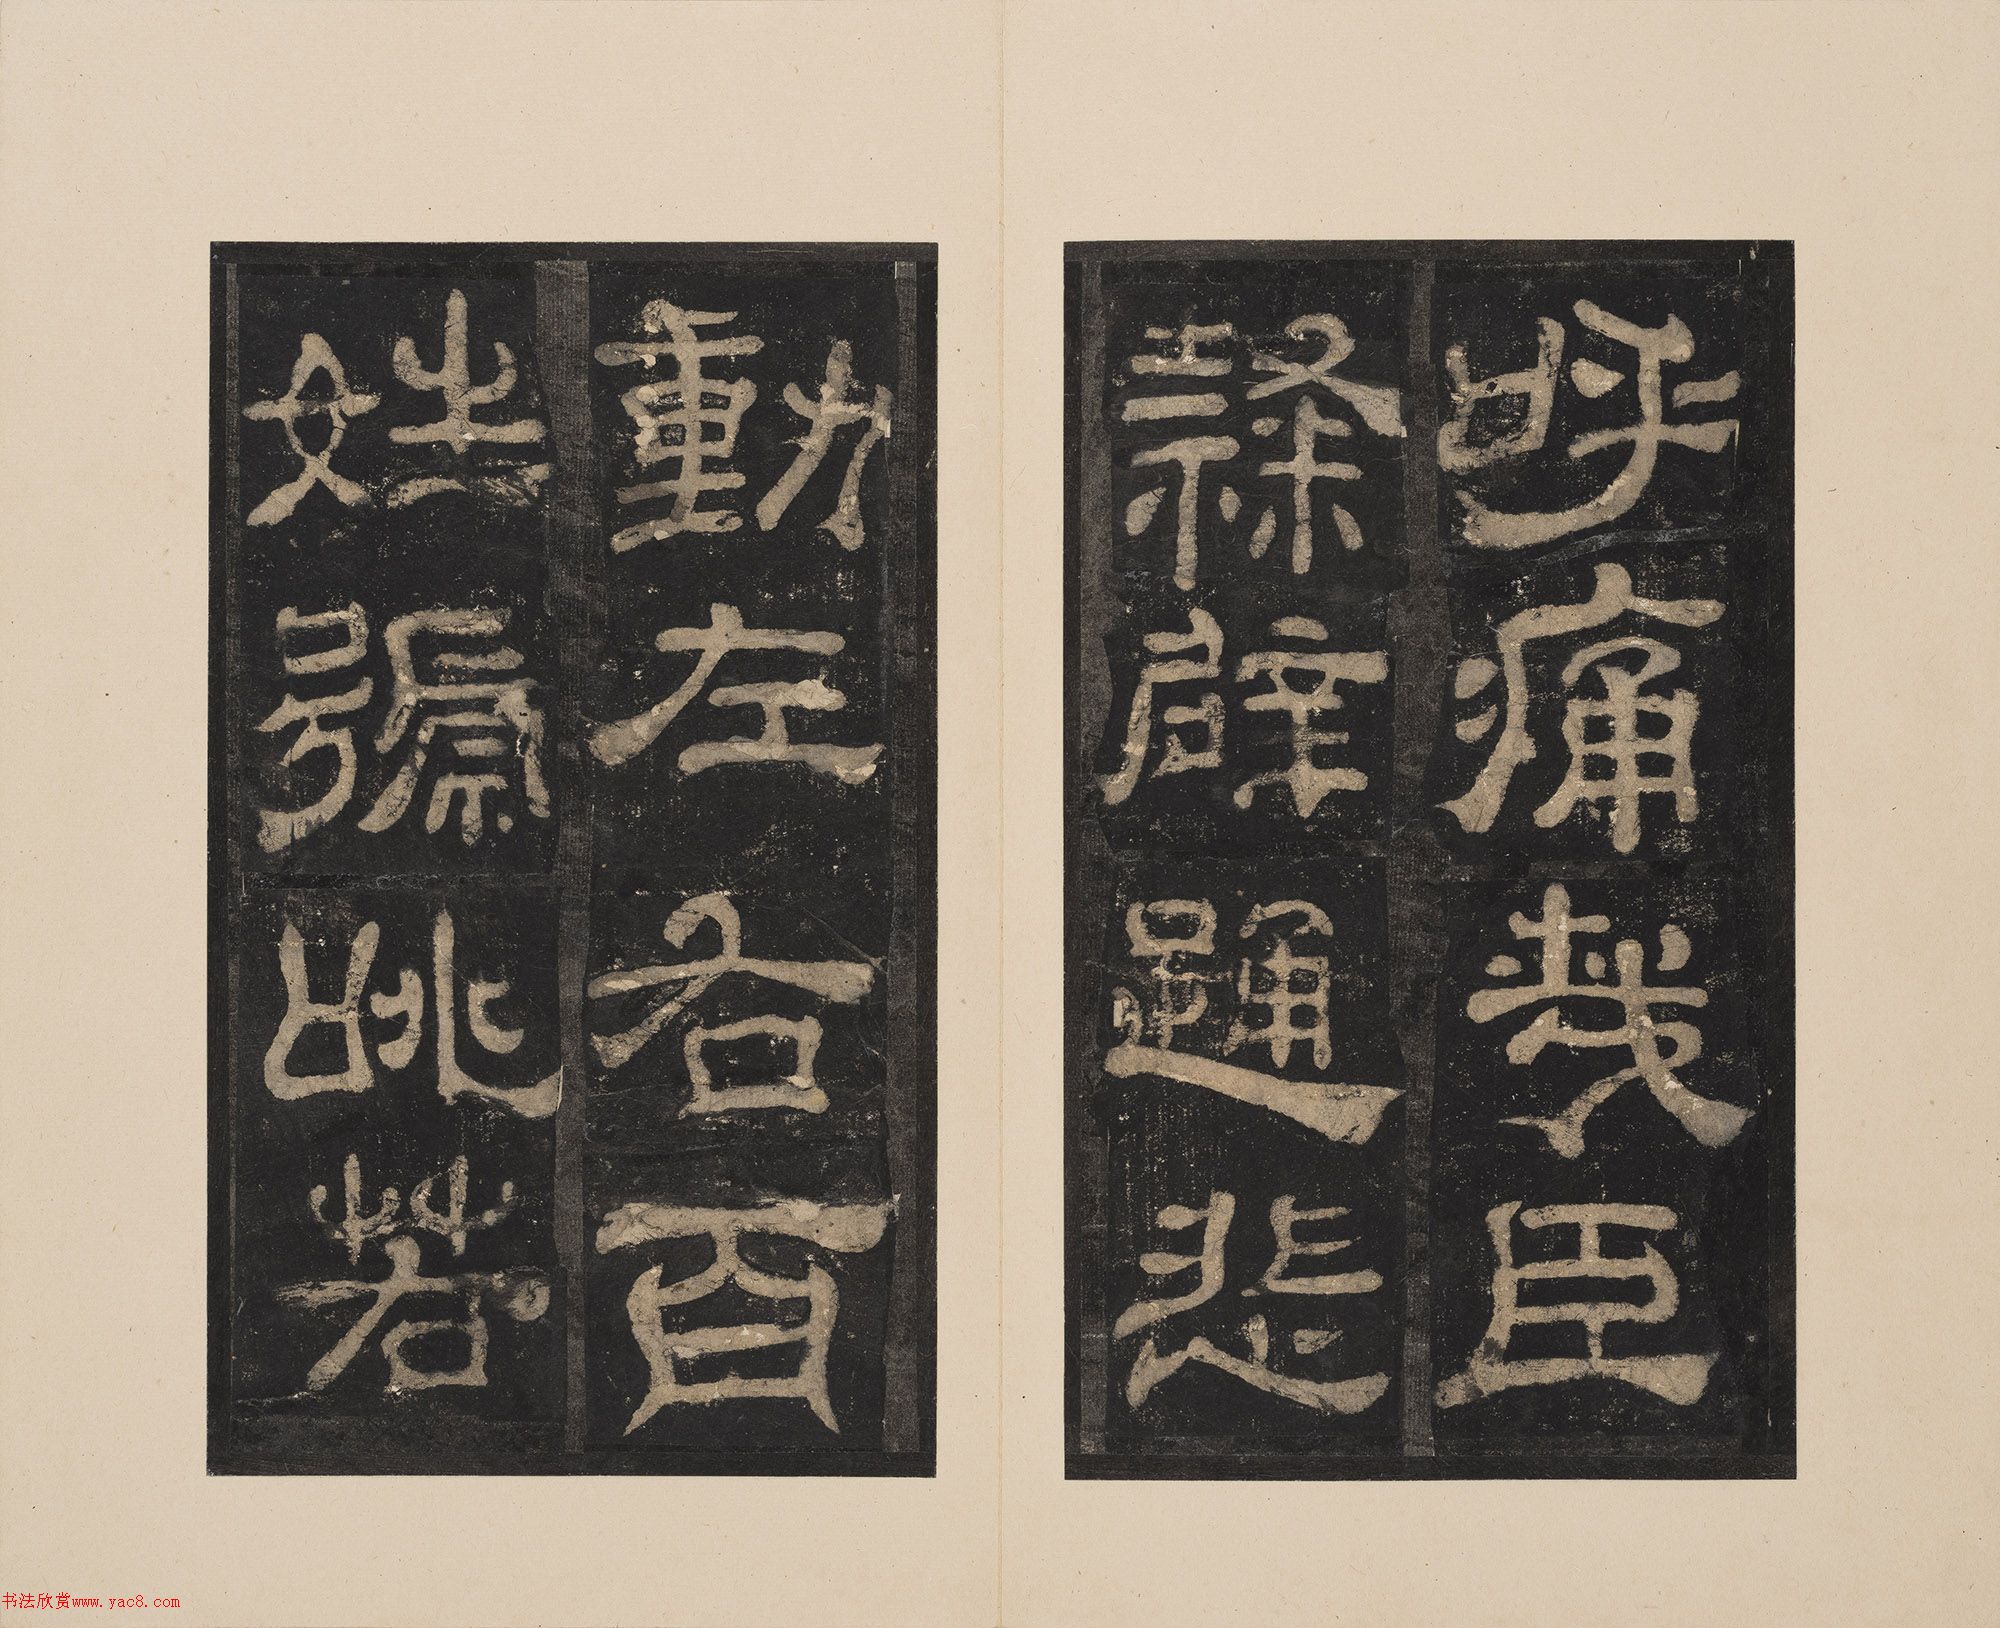 呼痛哉臣
隷辟踊悲
動左右百
姓號咷若
书法欣赏www.yac8.com